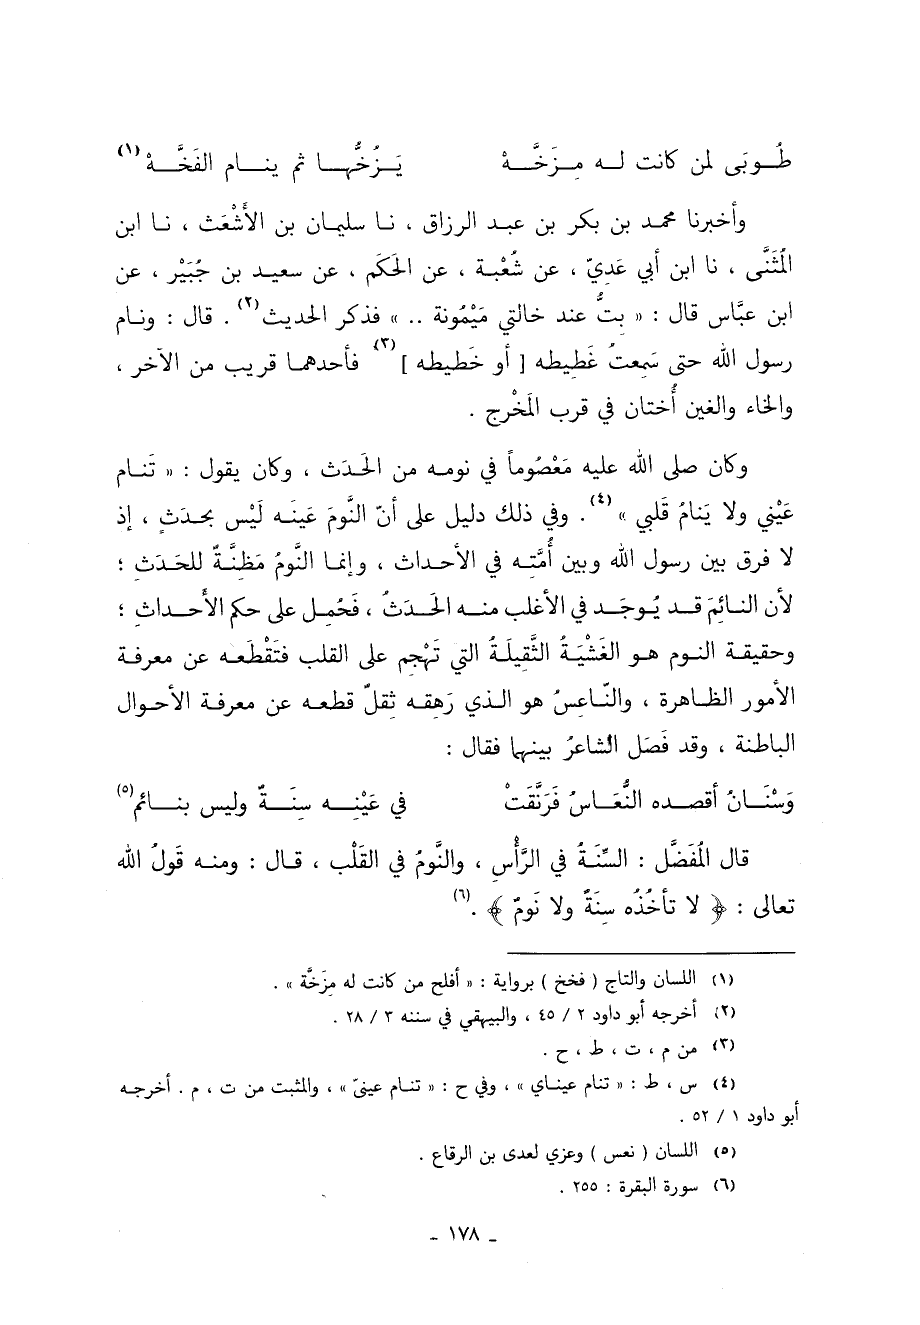 طُوبَى لمن كانت له مِزَخَّهْ يَزُخُّها ثم ينام الفَخَّهْ (١)
وأخبرنا محمد بن بكر بن عبد الرزاق ، نا سليمان بن الأَشْعَث ، نا ابن
المُثَنَّى ، نا ابن أبي عَديّ ، عن شُعْبة ، عن الحكَم ، عن سعيد بن جُبَيْر ، عن
ابن عبَّاس قال : « بتُّ عند خالتي مَيْمُونة .. » فذكر الحديث (٢) . قال : ونام
رسول الله حتى سَمِعتُ غَطِيطه [ أو خَطِيطه ] (٣) فأحدهما قريب من الآخر ،
والخاء والغين أُختان في قرب المَخْرج .
وكان صلى الله عليه مَعْصُوماً في نومه من الحَدَث ، وكان يقول : « تَنام
عَيْني ولا يَنامُ قَلبي » (٤) . وفي ذلك دليل على أنّ النَّومَ عَينَه لَيْس بحَدَثٍ ، إذ
لا فرق بين رسول الله وبين أُمَّته في الأحداث ، وإنما النَّومُ مَظِنَّةٌ للحَدَثِ ؛
لأن النائمَ قد يُوجَد في الأغلب منه الحَدثُ ، فَحُمِل على حكم الأحداثِ ؛
وحقيقة النوم هو الغَشْيَةُ الثَّقيلَةُ التي تَهْجِم على القلب فتَقْطَعه عن معرفة
الأمور الظاهرة ، والنّاعِسُ هو الذي رَهِقه ثِقلٌ قطعه عن معرفة الأحوال
الباطنة ، وقد فَصَل الشاعرُ بينهما فقال :
وَسْنَانُ أقصده النُّعَاسُ فَرَنَّقَتْ في عَيْنِه سِنَةٌ وليس بنائمِ (٥)
قال المُفَضَّل : السِّنَةُ في الرَّأْسِ ، والنَّومُ في القَلْب ، قال : ومنه قَولُ الله
تعالى : ﴿ لا تأخُذُه سِنَةٌ ولا نَومٌ ﴾ . (٦)
(١) اللسان والتاج ( فخخ ) برواية : « أفلح من كانت له مِزَخَّة » .
(٢) أخرجه أبو داود ٢ / ٤٥ ، والبيهقي في سننه ٣ / ٢٨ .
(٣) من م ، ت ، ط ، ح .
(٤) س ، ط : « تنام عيناي » ، وفي ح : « تنام عينيّ » ، والمثبت من ت ، م . أخرجه
أبو داود ١ / ٥٢ .
(٥) اللسان ( نعس ) وعزي لعدى بن الرقاع .
(٦) سورة البقرة : ٢٥٥ .
ـ ١٧٨ ـ